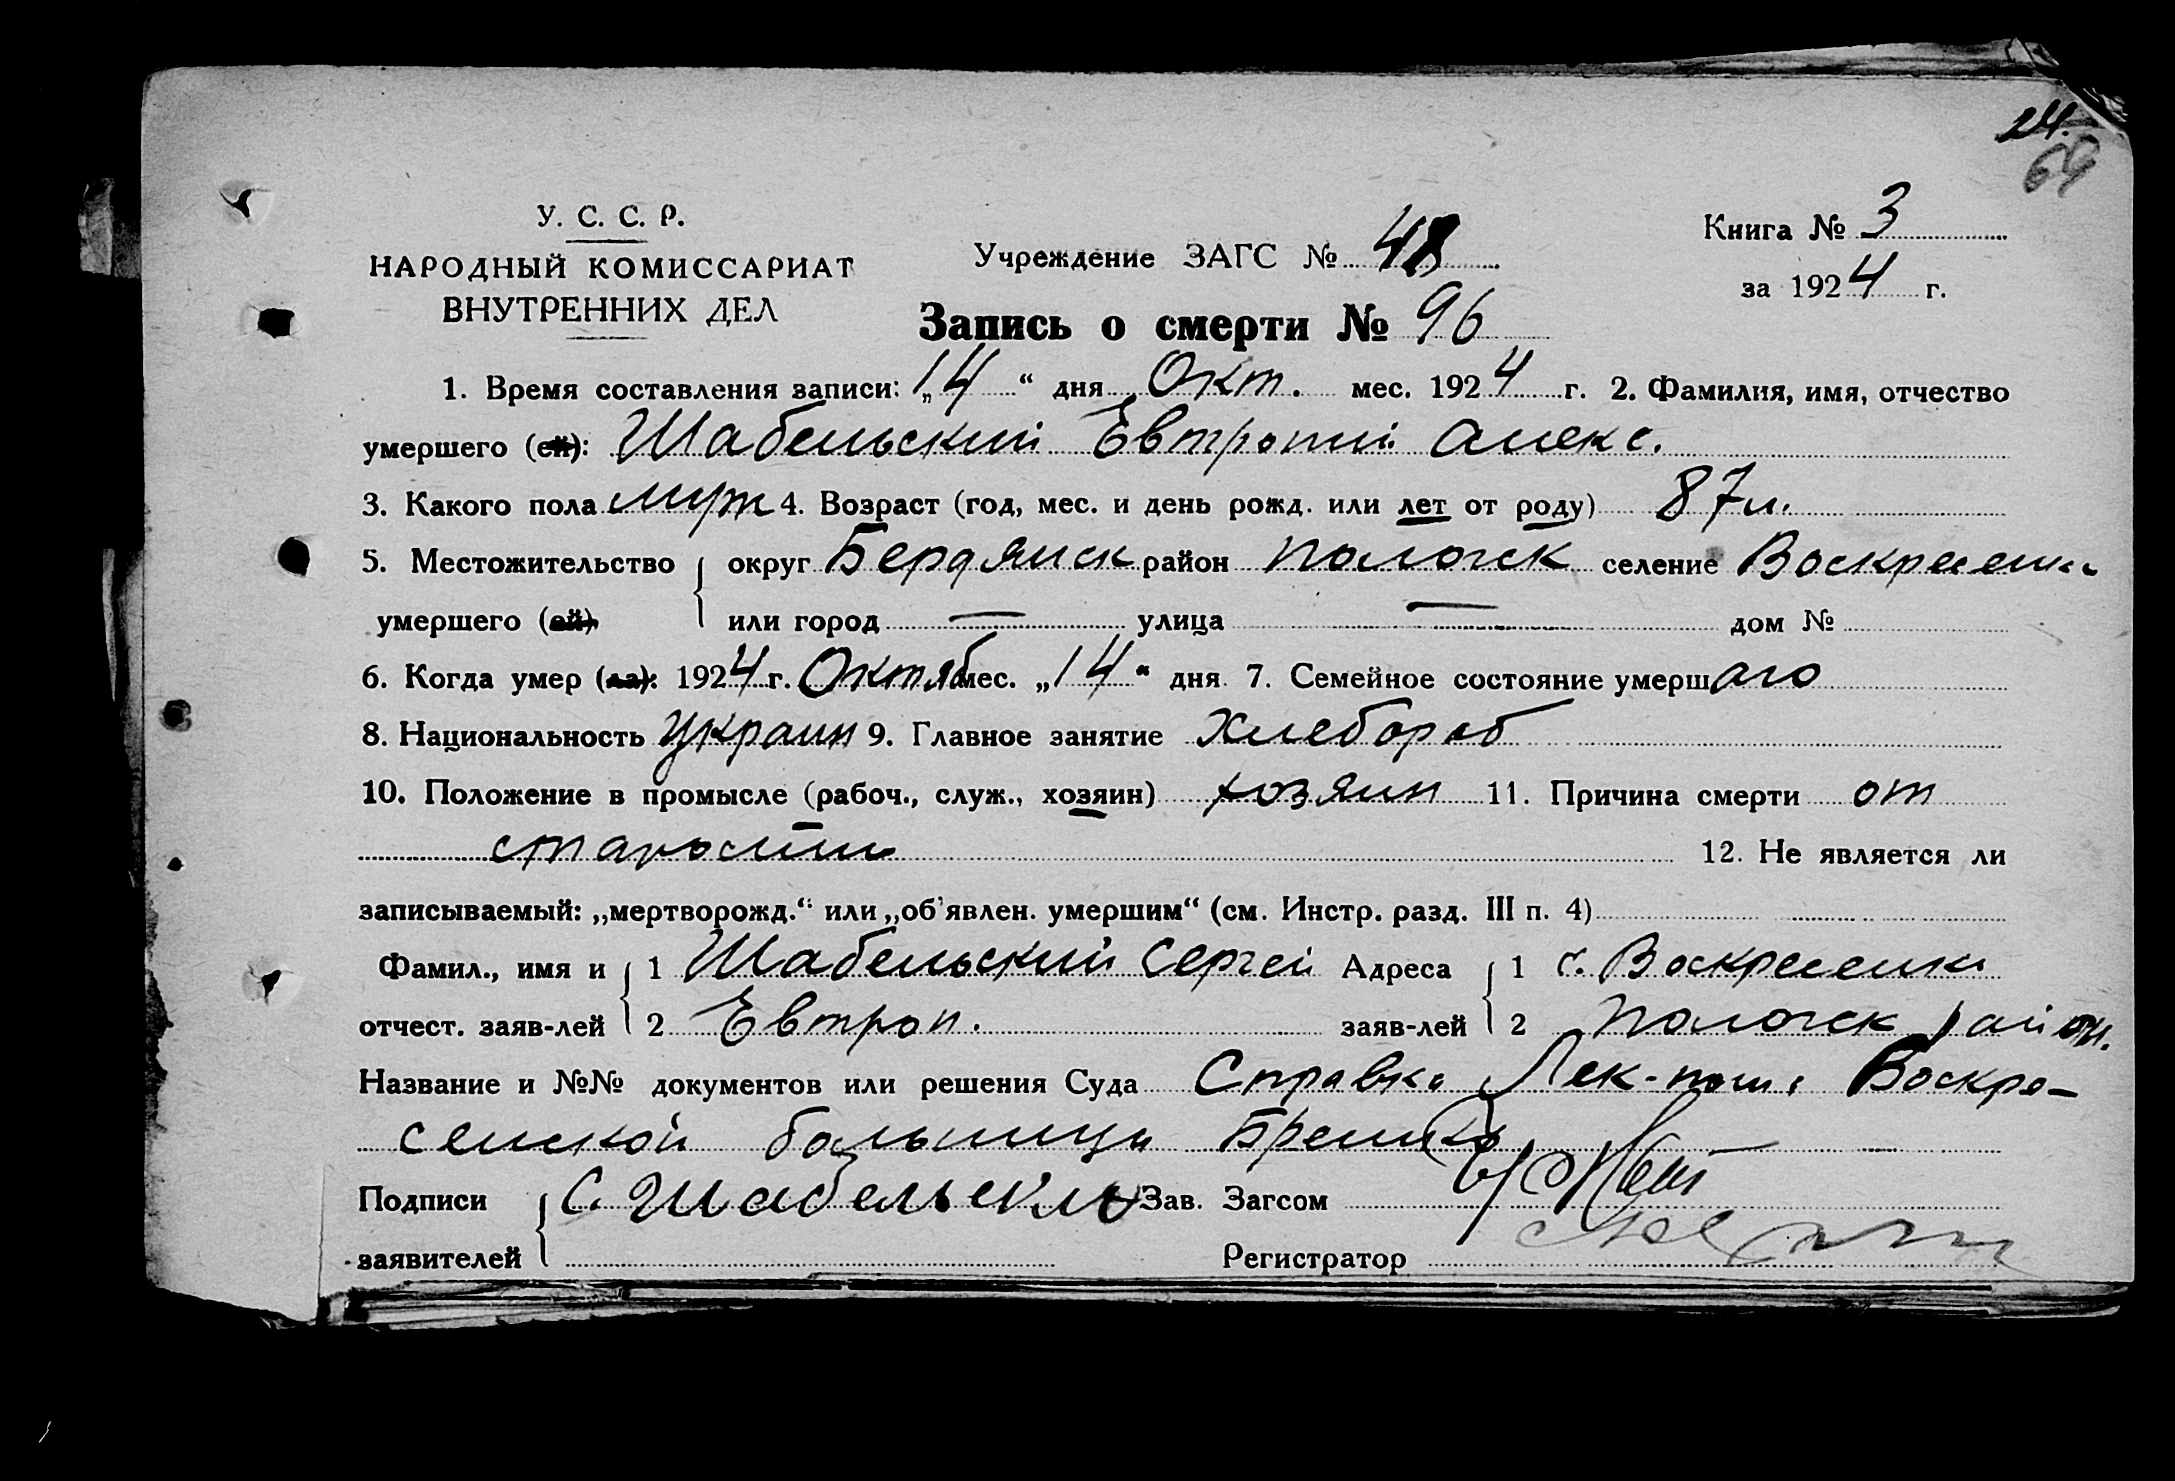 24.
69
У. С. С. Р.
НАРОДНЫЙ КОМИССАРИАТ
ВНУТРЕННИХ ДЕЛ
Учреждение ЗАГС № 48
Книга № 3
за 1924 г.
Запись о смерти № 96
1. Время составления записи: „14“ дня Окт. мес. 1924 г. 2. Фамилия, имя, отчество
умершего (ей): Шабельский Евтропий Алекс.
3. Какого пола муж 4. Возраст (год, мес. и день рожд. или лет от роду) 87 л.
5. Местожительство округ Бердянск район Пологск селение Воскресенка
умершего (ей) или город — улица — дом №
6. Когда умер (ла): 1924 г. Октяб мес. „14“ дня 7. Семейное состояние умершаго
8. Национальность украин 9. Главное занятие Хлебороб
10. Положение в промысле (рабоч., служ., хозяин) хозяин 11. Причина смерти от
старости
12. Не является ли
записываемый: „мертворожд.“ или „об'явлен. умершим“ (см. Инстр. разд. III п. 4)
Фамил., имя и 1 Шабельский Сергей Адреса 1 с. Воскресенка
отчест. заяв-лей 2 Евтроп. заяв-лей 2 Пологск район.
Название и №№ документов или решения Суда Справка Лек-пома Воскре-
сенской больницы
Подписи С. Шабельский Зав. Загсом
заявителей Регистратор